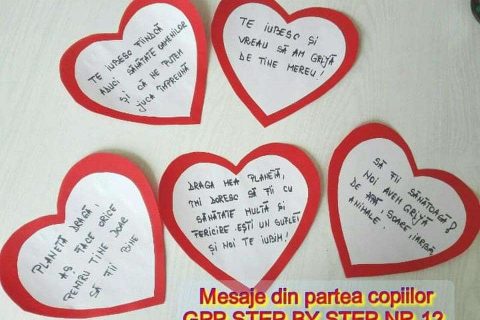 TE IUBESC FIINDCĂ
ADUCI SĂNĂTATE OAMENILOR
ȘI CĂ NE PUTEM
JUCA ÎMPREUNĂ
TE IUBESC ȘI
VREAU SĂ AM GRIJĂ
DE TINE MEREU!
PLANETĂ DRAGĂ,
AȘ FACE ORICE
PENTRU TINE DOAR
SĂ FII BINE
DRAGA MEA PLANETĂ,
ÎȚI DORESC SĂ FII CU
SĂNĂTATE MULTĂ ȘI
FERICIRE EȘTI UN SUFLET
ȘI NOI TE IUBIM!
SĂ FII SĂNĂTOASĂ!
NOI AVEM GRIJĂ
DE APĂ, SOARE, IARBĂ,
ANIMALE.
Mesaje din partea copiilor
GPP STEP BY STEP NR 12